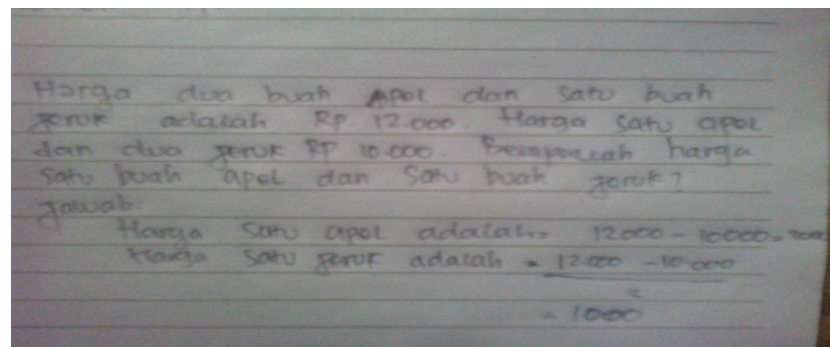 Harga dua buah Apel dan satu buah
jeruk adalah Rp. 12.000. Harga satu apel
dan dua jeruk Rp 10.000. Berapakah harga
satu buah apel dan satu buah jeruk?
Jawab:
Harga satu apel adalah = 12.000 - 10.000 = 2000
Harga satu jeruk adalah = 12.000 - 10.000
2
= 1000